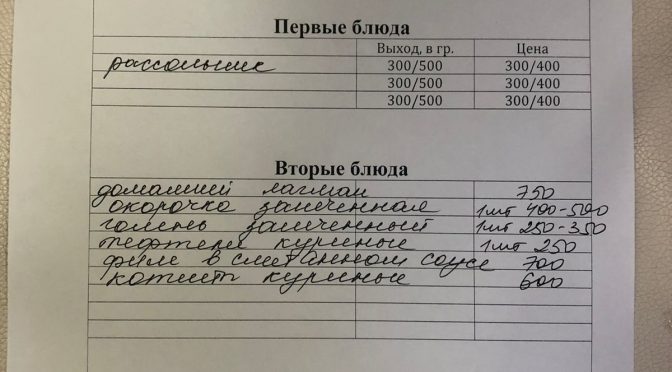 Первые блюда
Выход, в гр. Цена
рассольник 300/500 300/400
300/500 300/400
300/500 300/400
Вторые блюда
домашний лагман 750
окорочка запеченная 1шт 400-500
голень запеченный 1шт 250-350
тефтели куриные 1шт 250
филе в сметанном соусе 700
котлет куриные 600